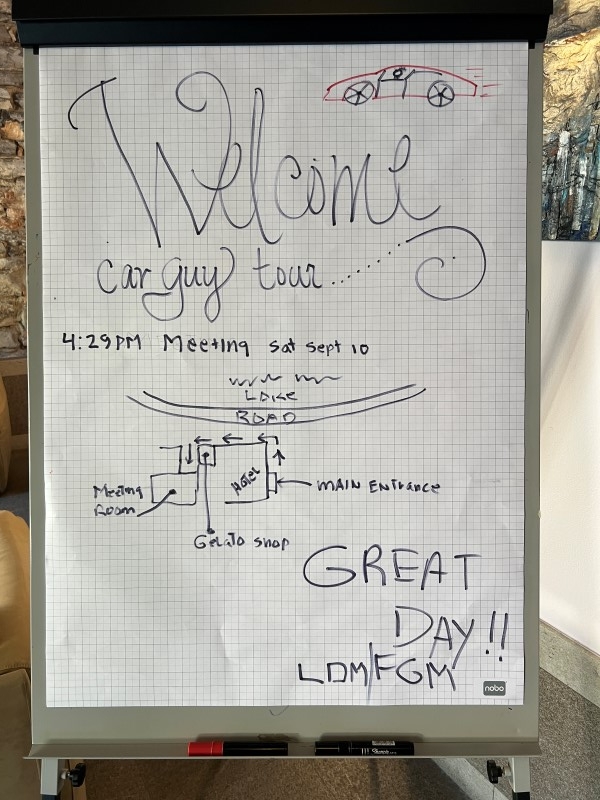 Welcome
car guy tour......
4:29PM Meeting Sat Sept 10
LAKE
ROAD
HOTEL
MAIN ENTRANCE
Meeting
Room
Gelato Shop
GREAT
DAY!!
LDM/FGM
nobo